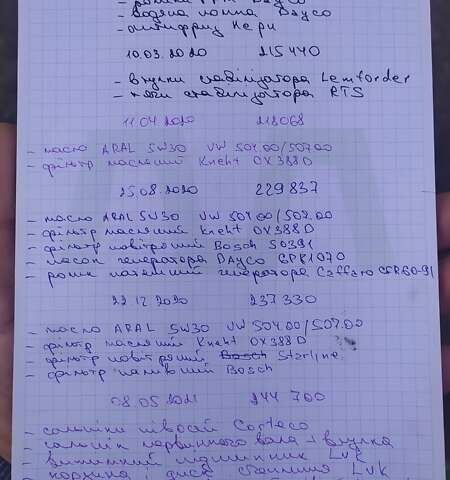 - ролики ГРМ Dayco
- водяна помпа Dayco
- антифриз Кери
10.03.2020 215 440
- втулки стабілізатора Lemforder
- тяги стабілізатора RTS
11.04 2020 218068
- масло ARAL 5W30 VW 504.00/507.00
- фільтр масляний Kneht OX388D
25.08 2020 229 837
- масло ARAL 5W30 VW 504.00/507.00
- фільтр масляний Kneht OX388D
- фільтр повітряний Bosch S0391
- пасок генератора Dayco 6PK1070
- ролик натяжний генератора Caffaro
22.12 2020 237 330
- масло ARAL 5W30 VW 504.00/507.00
- фільтр масляний Kneht OX388D
- фільтр повітряний Bosch Starline
- фільтр паливний Bosch
08.05 2021 244 700
- сальніки півосей Corteco
- сальнік первинного вала + втулка
- вижимний підшипник Luk
- корзина, диск сцепления Luk